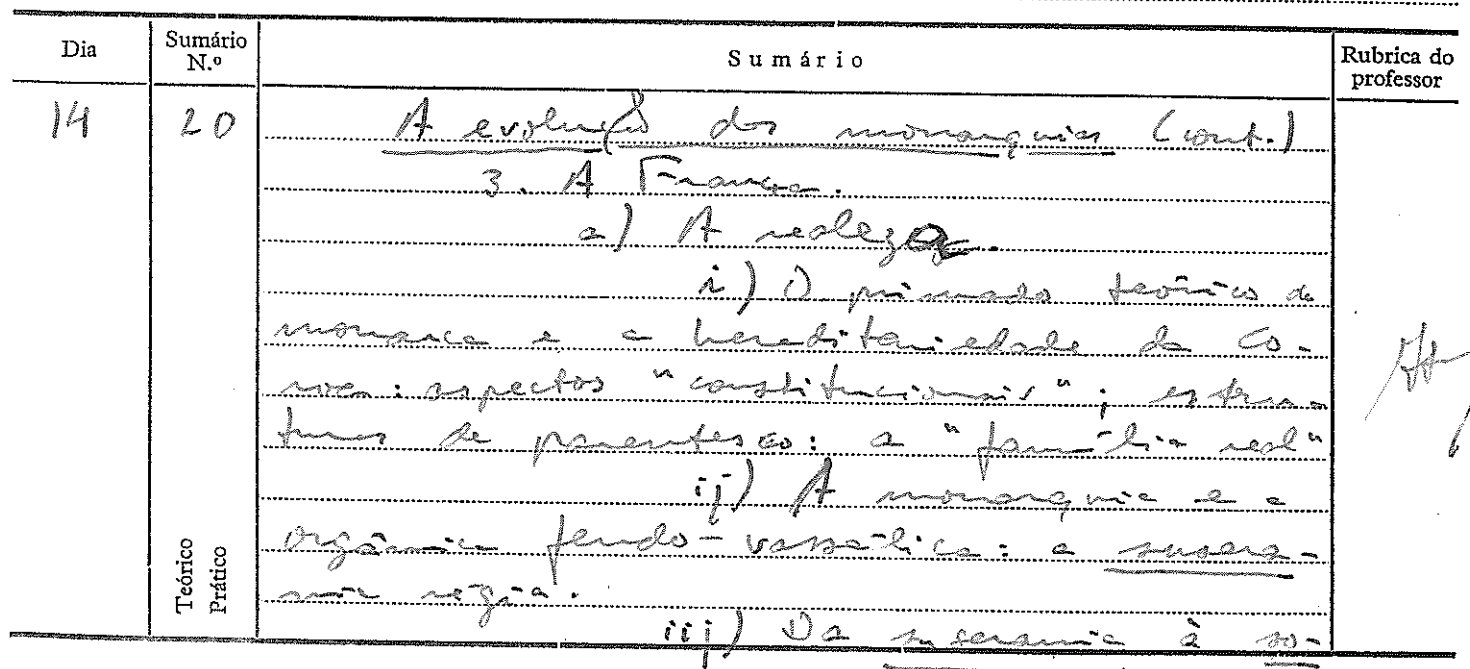 Dia
Sumário N.º
Sumário
Rubrica do professor
14
20
A evolução das monarquias (cont.)
3. A França.
a) A realeza.
i) O primado teórico do
monarca e a hereditariedade da Co-
roa: aspectos "constitucionais"; estru-
turas de parentesco: a "família real"
ij) A monarquia e a
orgânica feudo-vassálica: a susera-
nia régia.
iij) Da suserania à so-
Teórico
Prático